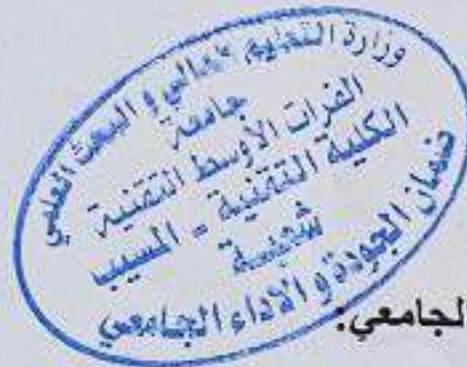 وزارة التعليم العالي و البحث العلمي
جامعة
الفرات الأوسط التقنية
الكلية التقنية - المسيب
شعبة
ضمان الجودة و الاداء الجامعي
لجامعي: